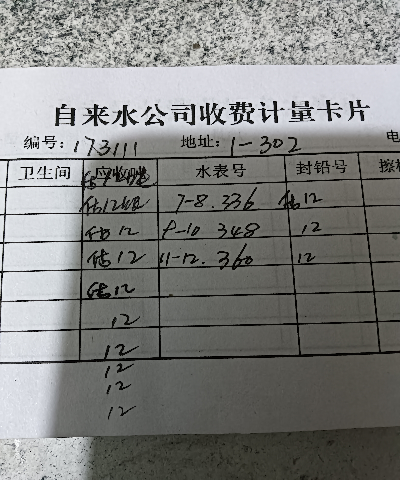 自来水公司收费计量卡片
编号:173111 地址:1-302 电
卫生间 应收 水表号 封铅号 擦
估12 7-8. 336 估12
估12 9-10 348 12
估12 11-12. 360 12
估12
12
12
12
12
12